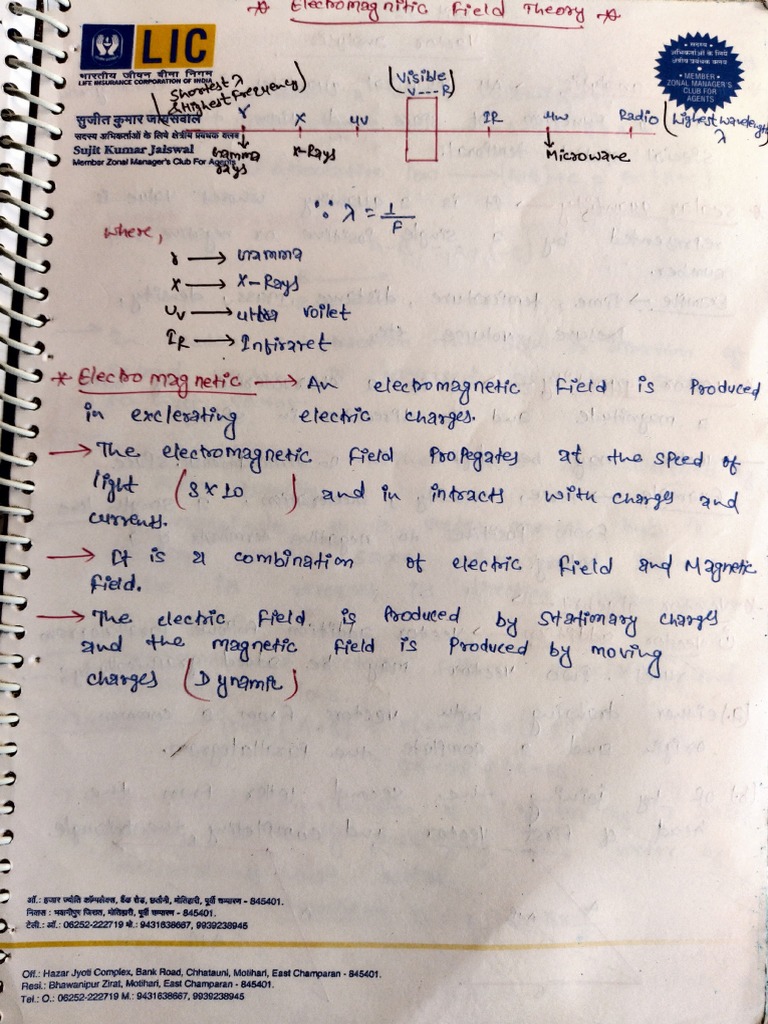 ☆ Electromagnitic Field Theory ☆
LIC
भारतीय जीवन बीमा निगम
LIFE INSURANCE CORPORATION OF INDIA
सुजीत कुमार जायसवाल
सदस्य अभिकर्ताओं के लिये क्षेत्रीय प्रबंधक क्लब
Sujit Kumar Jaiswal
Member Zonal Manager's Club For Agents
सदस्य
अभिकर्ताओं के लिए
क्षेत्रीय प्रबंधक क्लब
MEMBER
ZONAL MANAGER'S
CLUB FOR
AGENTS
(Shortest λ
& Highest frequency)
(Visible)
V---R
γ X UV IR μw Radio (Highest wavelength
λ
Gamma
rays
X-Rays
Microwave
∵ λ = 1/F
where,
γ → Gamma
X → X-Rays
UV → ultra voilet
IR → Infiraret
* Electromagnetic → An electromagnetic field is Produced
in exclerating electric charges.
→ The electromagnetic field Propegates at the speed of
light (3×10 ) and in intracts with charges and
currents.
→ It is a combination of electric field and Magnetic
field.
→ The electric field is Produced by stationary charges
and the magnetic field is Produced by moving
charges (Dynamic)
ऑ.: हजार ज्योति कॉम्पलेक्स, बैंक रोड, छतौनी, मोतिहारी, पूर्वी चम्पारण - 845401.
निवास : भवानीपुर जिरात, मोतिहारी, पूर्वी चम्पारण - 845401.
टेली.: ऑ.: 06252-222719 मो.: 9431638667, 9939238945
Off.: Hazar Jyoti Complex, Bank Road, Chhatauni, Motihari, East Champaran - 845401.
Resi.: Bhawanipur Zirat, Motihari, East Champaran - 845401.
Tel.: O.: 06252-222719 M.: 9431638667, 9939238945